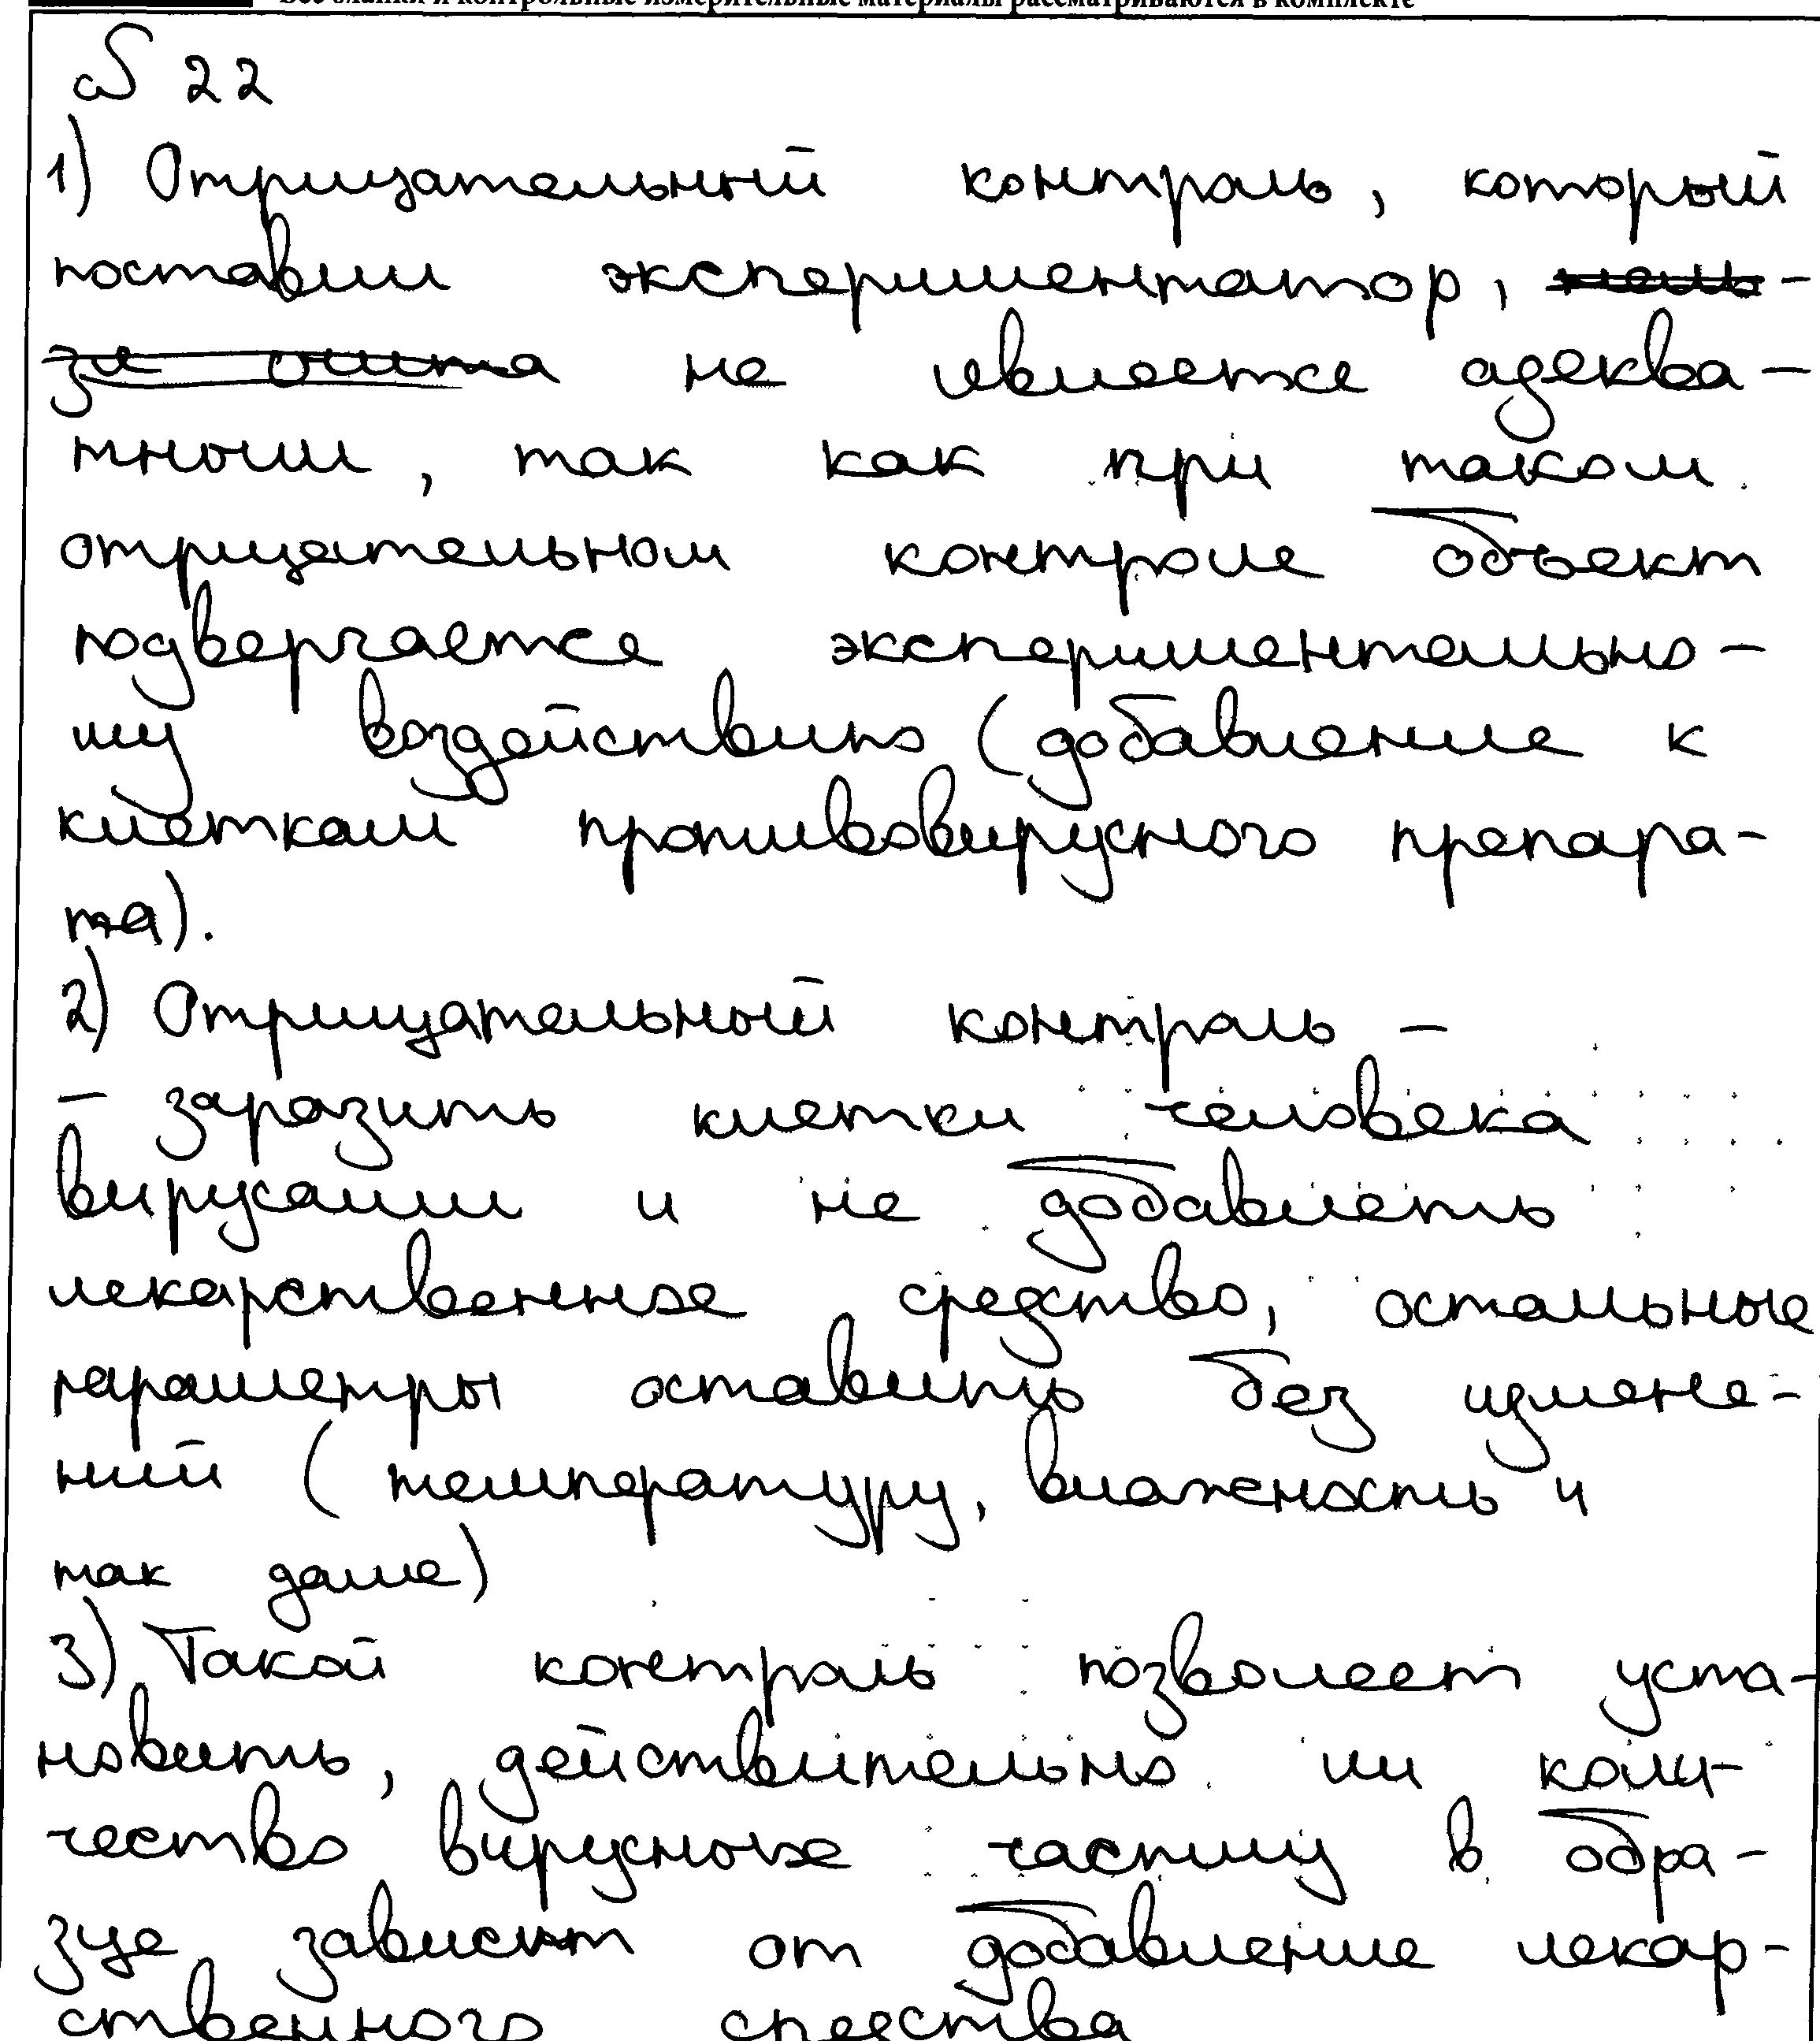 Все бланки и контрольные измерительные материалы рассматриваются в комплекте
№ 22
1) Отрицательный контроль, который
поставил экспериментатор, нель-
зя счита не является адеква-
тным, так как при таком
отрицательном контроле объект
подвергается экспериментально-
му воздействию (добавление к
клеткам противовирусного препара-
та).
2) Отрицательный контроль -
- заразить клетки человека
вирусами и не добавлять
лекарственное средство, остальные
параметры оставить без измене-
ний (температуру, влажность и
так далее)
3) Такой контроль позволяет уста-
новить, действительно ли коли-
чество вирусных частиц в обра-
зце зависит от добавление лекар-
ственного средства